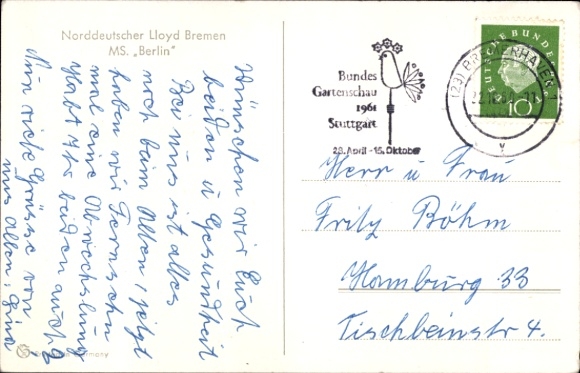 Norddeutscher Lloyd Bremen
MS. „Berlin"
Wünschen wir Euch
beiden u Gesundheit
Bei uns ist alles
noch beim Alten, jetzt
haben wir Fernsehn
mal eine Abwechslung
Habt Ihr beiden auch?
Nun viele Grüsse von
uns Allen, Gina
Germany
Bundes
Gartenschau
1961
Stuttgart
28. April - 15. Oktober
(23) BREMERHAVEN
DEUTSCHE BUNDESPOST
10
Herr u Frau
Fritz Böhm
Hamburg 33
Tischbeinstr 4.